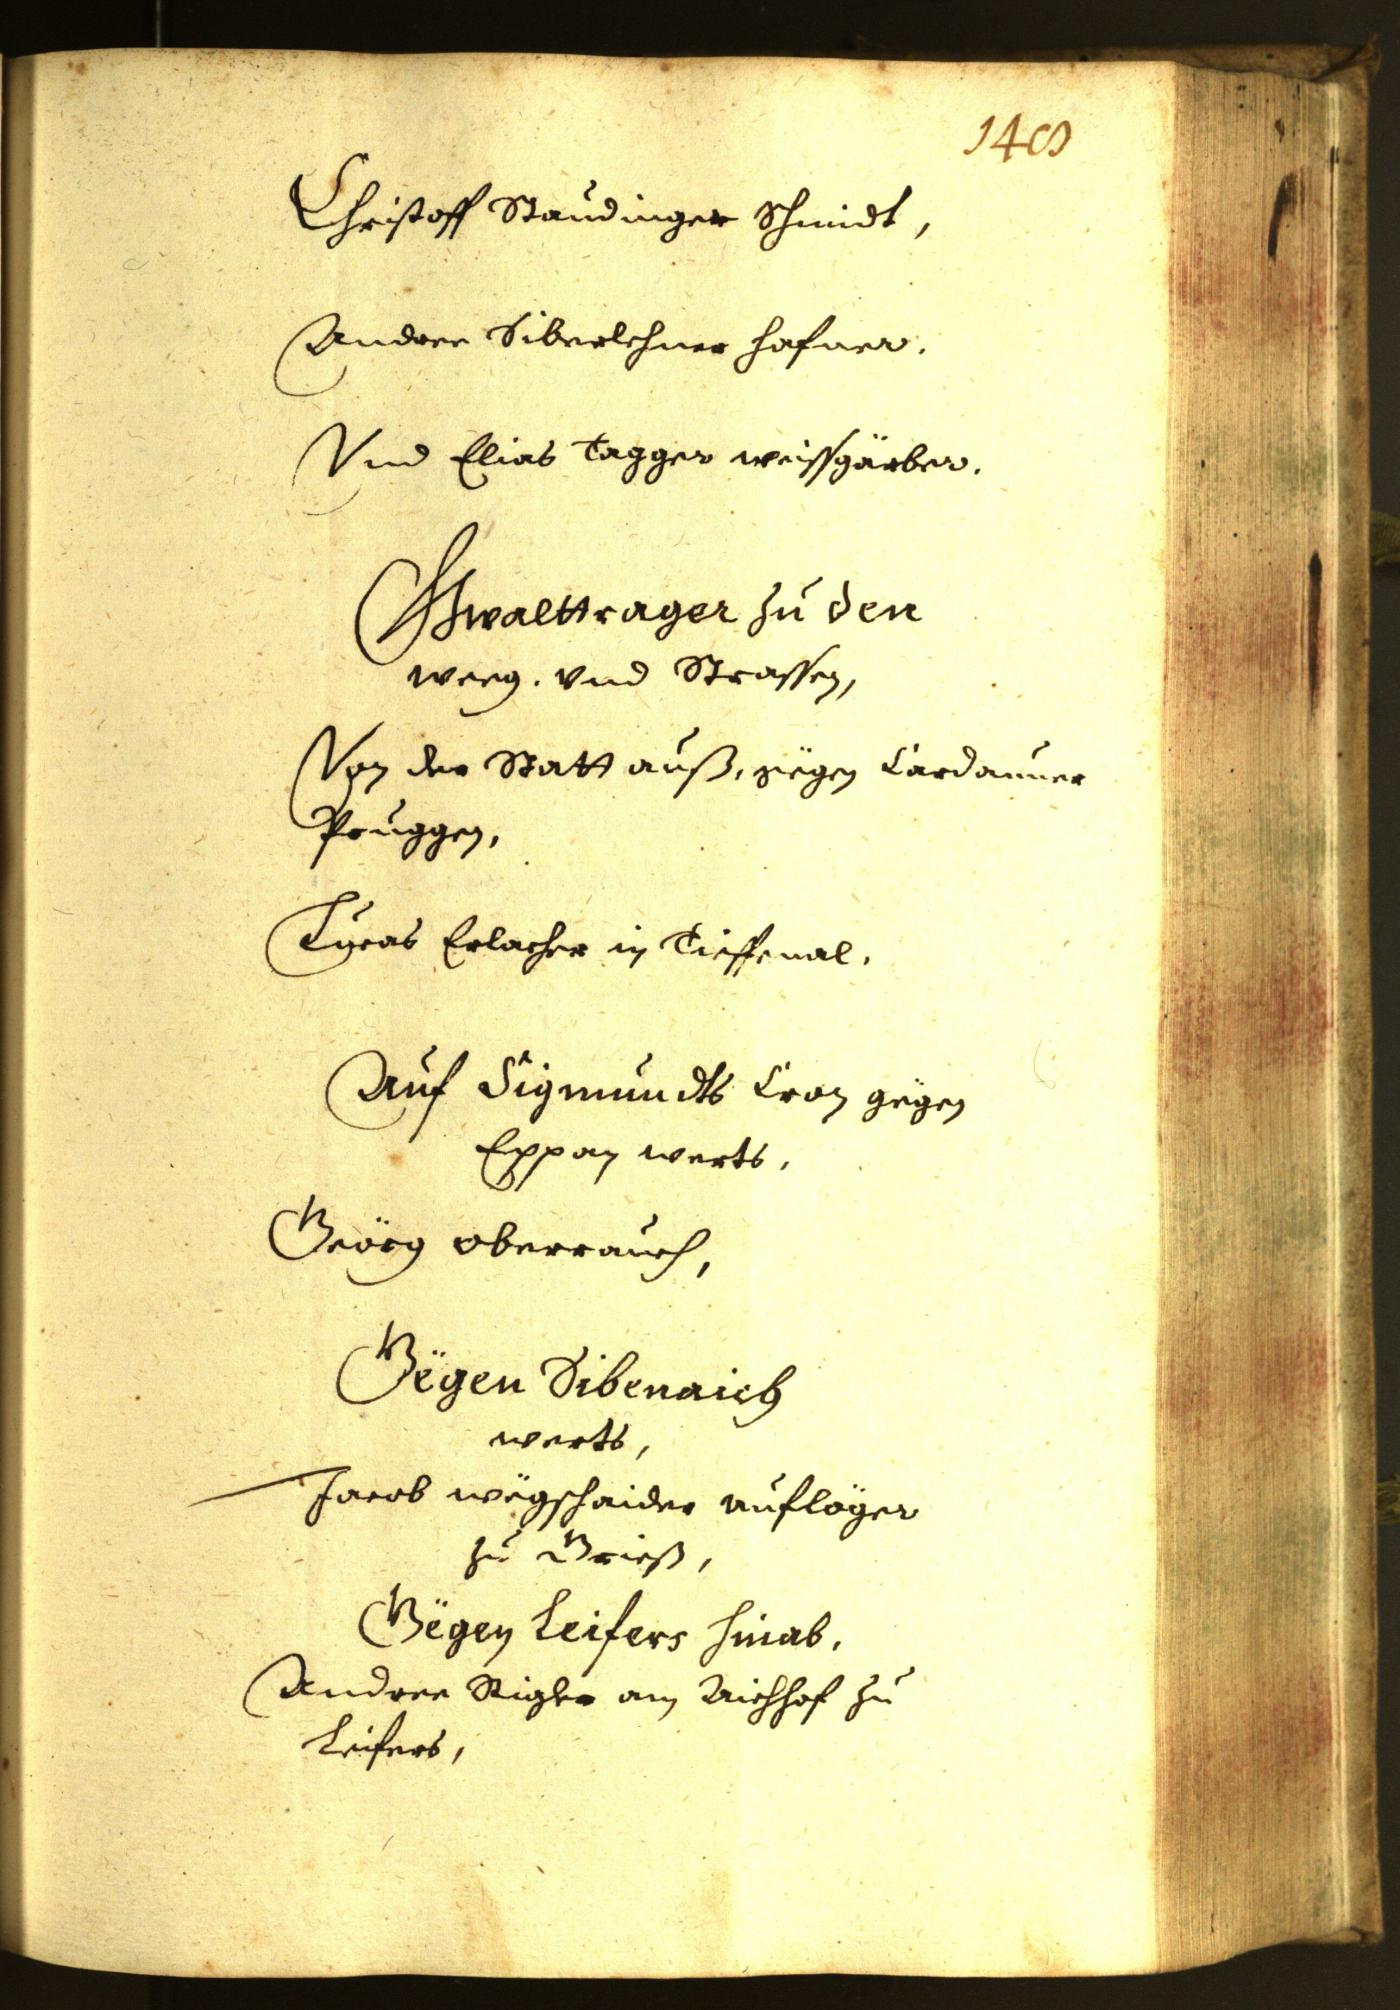 140
Christoff Staudinger Schmidt,
Andree Siberlehner hafner.
Vnd Elias Tagger weissgärber.
Gwalttrager zu den
weeg. vnd Strassen,
Von der Statt auß, gëgen Cardauner
Pruggen,
Lucas Erlacher in Tieffenal.
Auf Sigmundts Cron gegen
Eppan werts,
Geörg oberrauch,
Gëgen Sibenaich
werts,
Jacob wëgschaider auflöger
zu Grieß,
Gëgen Leifers hinab.
Andree Rigler am Aichhof zu
Leifers,